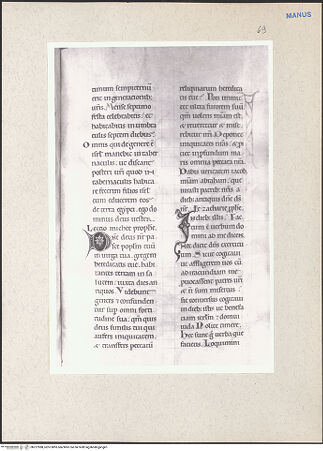 MANUS
69
timum sempiternu
erit in generationib;
festa celebrabitis: &
habitabitis in umbra
culis septem diebus.
Omnis qui de genere
isrl manebit in taber
naculis: ut discant
posteri uri quod in
tabernaculis habita
re fecerim filios isrl
cum educerem eos
de terra egypti. ego dns
deus uester.
Lectio michee prophe
pasce populu tuu
in uirga tua. gregem
hereditatis tue. habi
tantes
iuxta dies an
tiquos. Videbunt
gentes & confunden
tur sup omni forti
tudine sua: qm quis
deus similis tui qui
aufers iniquitatem.
& transfers peccatu
reliquiarum heredita
tis tue? Non immit
tet ultra furorem suu
qm uolens miam est.
& reuertetur & mise
rebitur nri. Deponet
iniquitates nras. & pi
ciet in pfundum ma
ris omnia peccata nra.
Dabis ueritatem iacob
miam abraham: que
iurasti patribus nris a
dieb; antiquis
In dieb; illis: Fac
tum est uerbum dni
ad me dicens.
Hec dicit dns exercitu
um. Sicut cogitaui
ut affligerem uos cu
ad iracundiam me
prouocassent patres uri
& n sum misertus:
sic conuersus cogitaui
in dieb; istis ut benefa
ciam
Nolite timere.
Hec sunt g uerba que
facietis. Loquimini